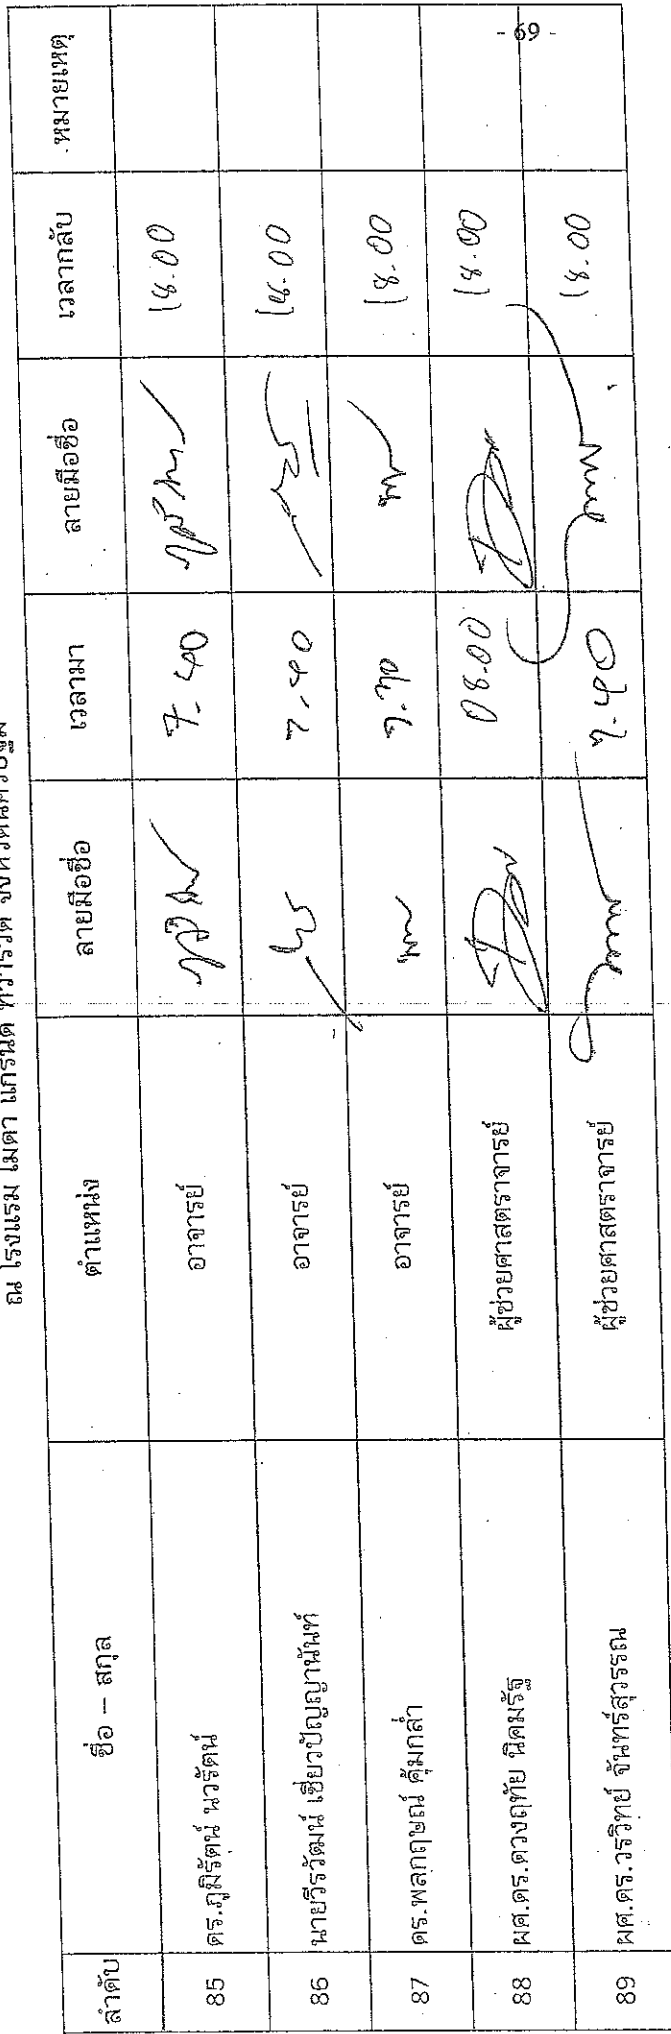 - 69 -
ณ โรงแรม ไมดา แกรนด์ ทวารวดี จังหวัดนครปฐม
ลำดับ ชื่อ – สกุล ตำแหน่ง ลายมือชื่อ เวลามา ลายมือชื่อ เวลากลับ หมายเหตุ
85 ดร.ภูมิรัตน์ นวรัตน์ อาจารย์ 7.40 18.00
86 นายวีรวัฒน์ เชี่ยวปัญญานันท์ อาจารย์ 7.40 18.00
87 ดร.พลกฤษณ์ คุ้มกล่ำ อาจารย์ 7.30 18.00
88 ผศ.ดร.ดวงฤทัย นิคมรัฐ ผู้ช่วยศาสตราจารย์ 08.00 18.00
89 ผศ.ดร.วรวิทย์ จันทร์สุวรรณ ผู้ช่วยศาสตราจารย์ 7.40 18.00